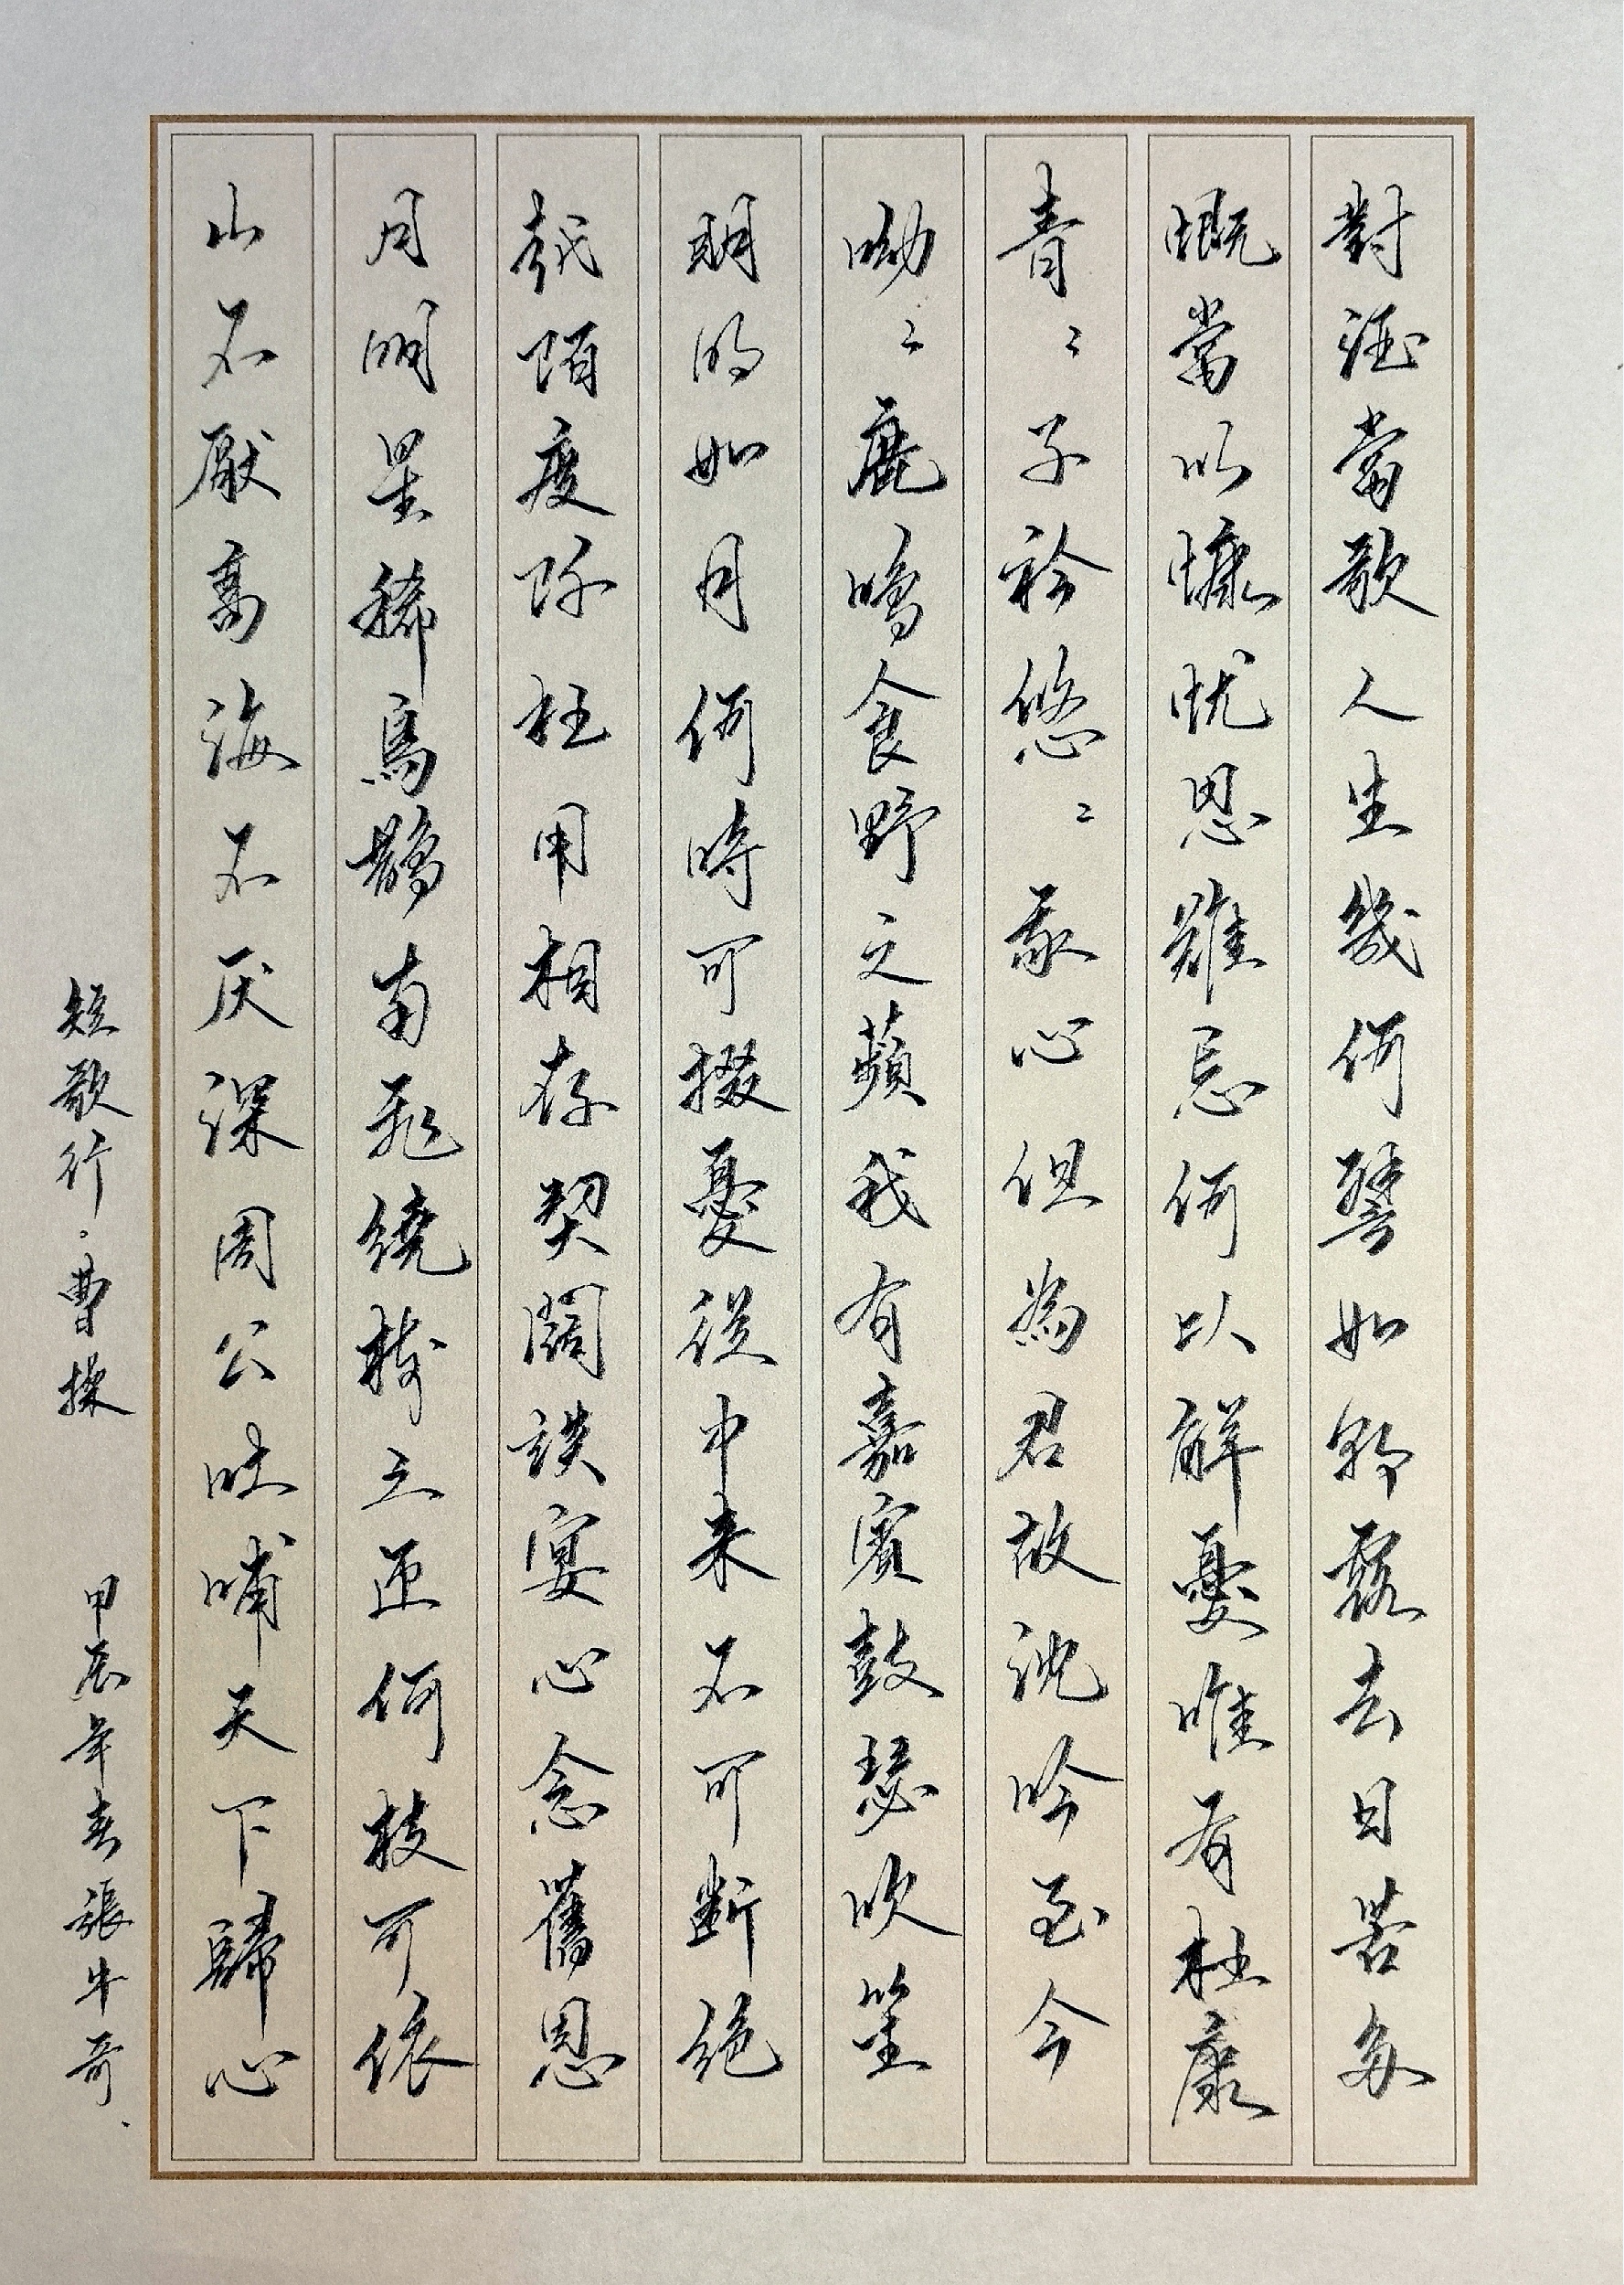 對酒當歌人生幾何譬如朝露去日苦多
慨當以慷忧思難忘何以解憂唯有杜康
青〻子衿悠〻我心但為君故沈吟至今
呦〻鹿鳴食野之蘋我有嘉賓鼓瑟吹笙
明明如月何時可掇憂從中来不可断絶
越陌度阡枉用相存契闊談宴心念舊恩
月明星稀烏鵲南飛繞樹三匝何枝可依
山不厭高海不厌深周公吐哺天下歸心
短歌行·曹操
甲辰年春張牛奇